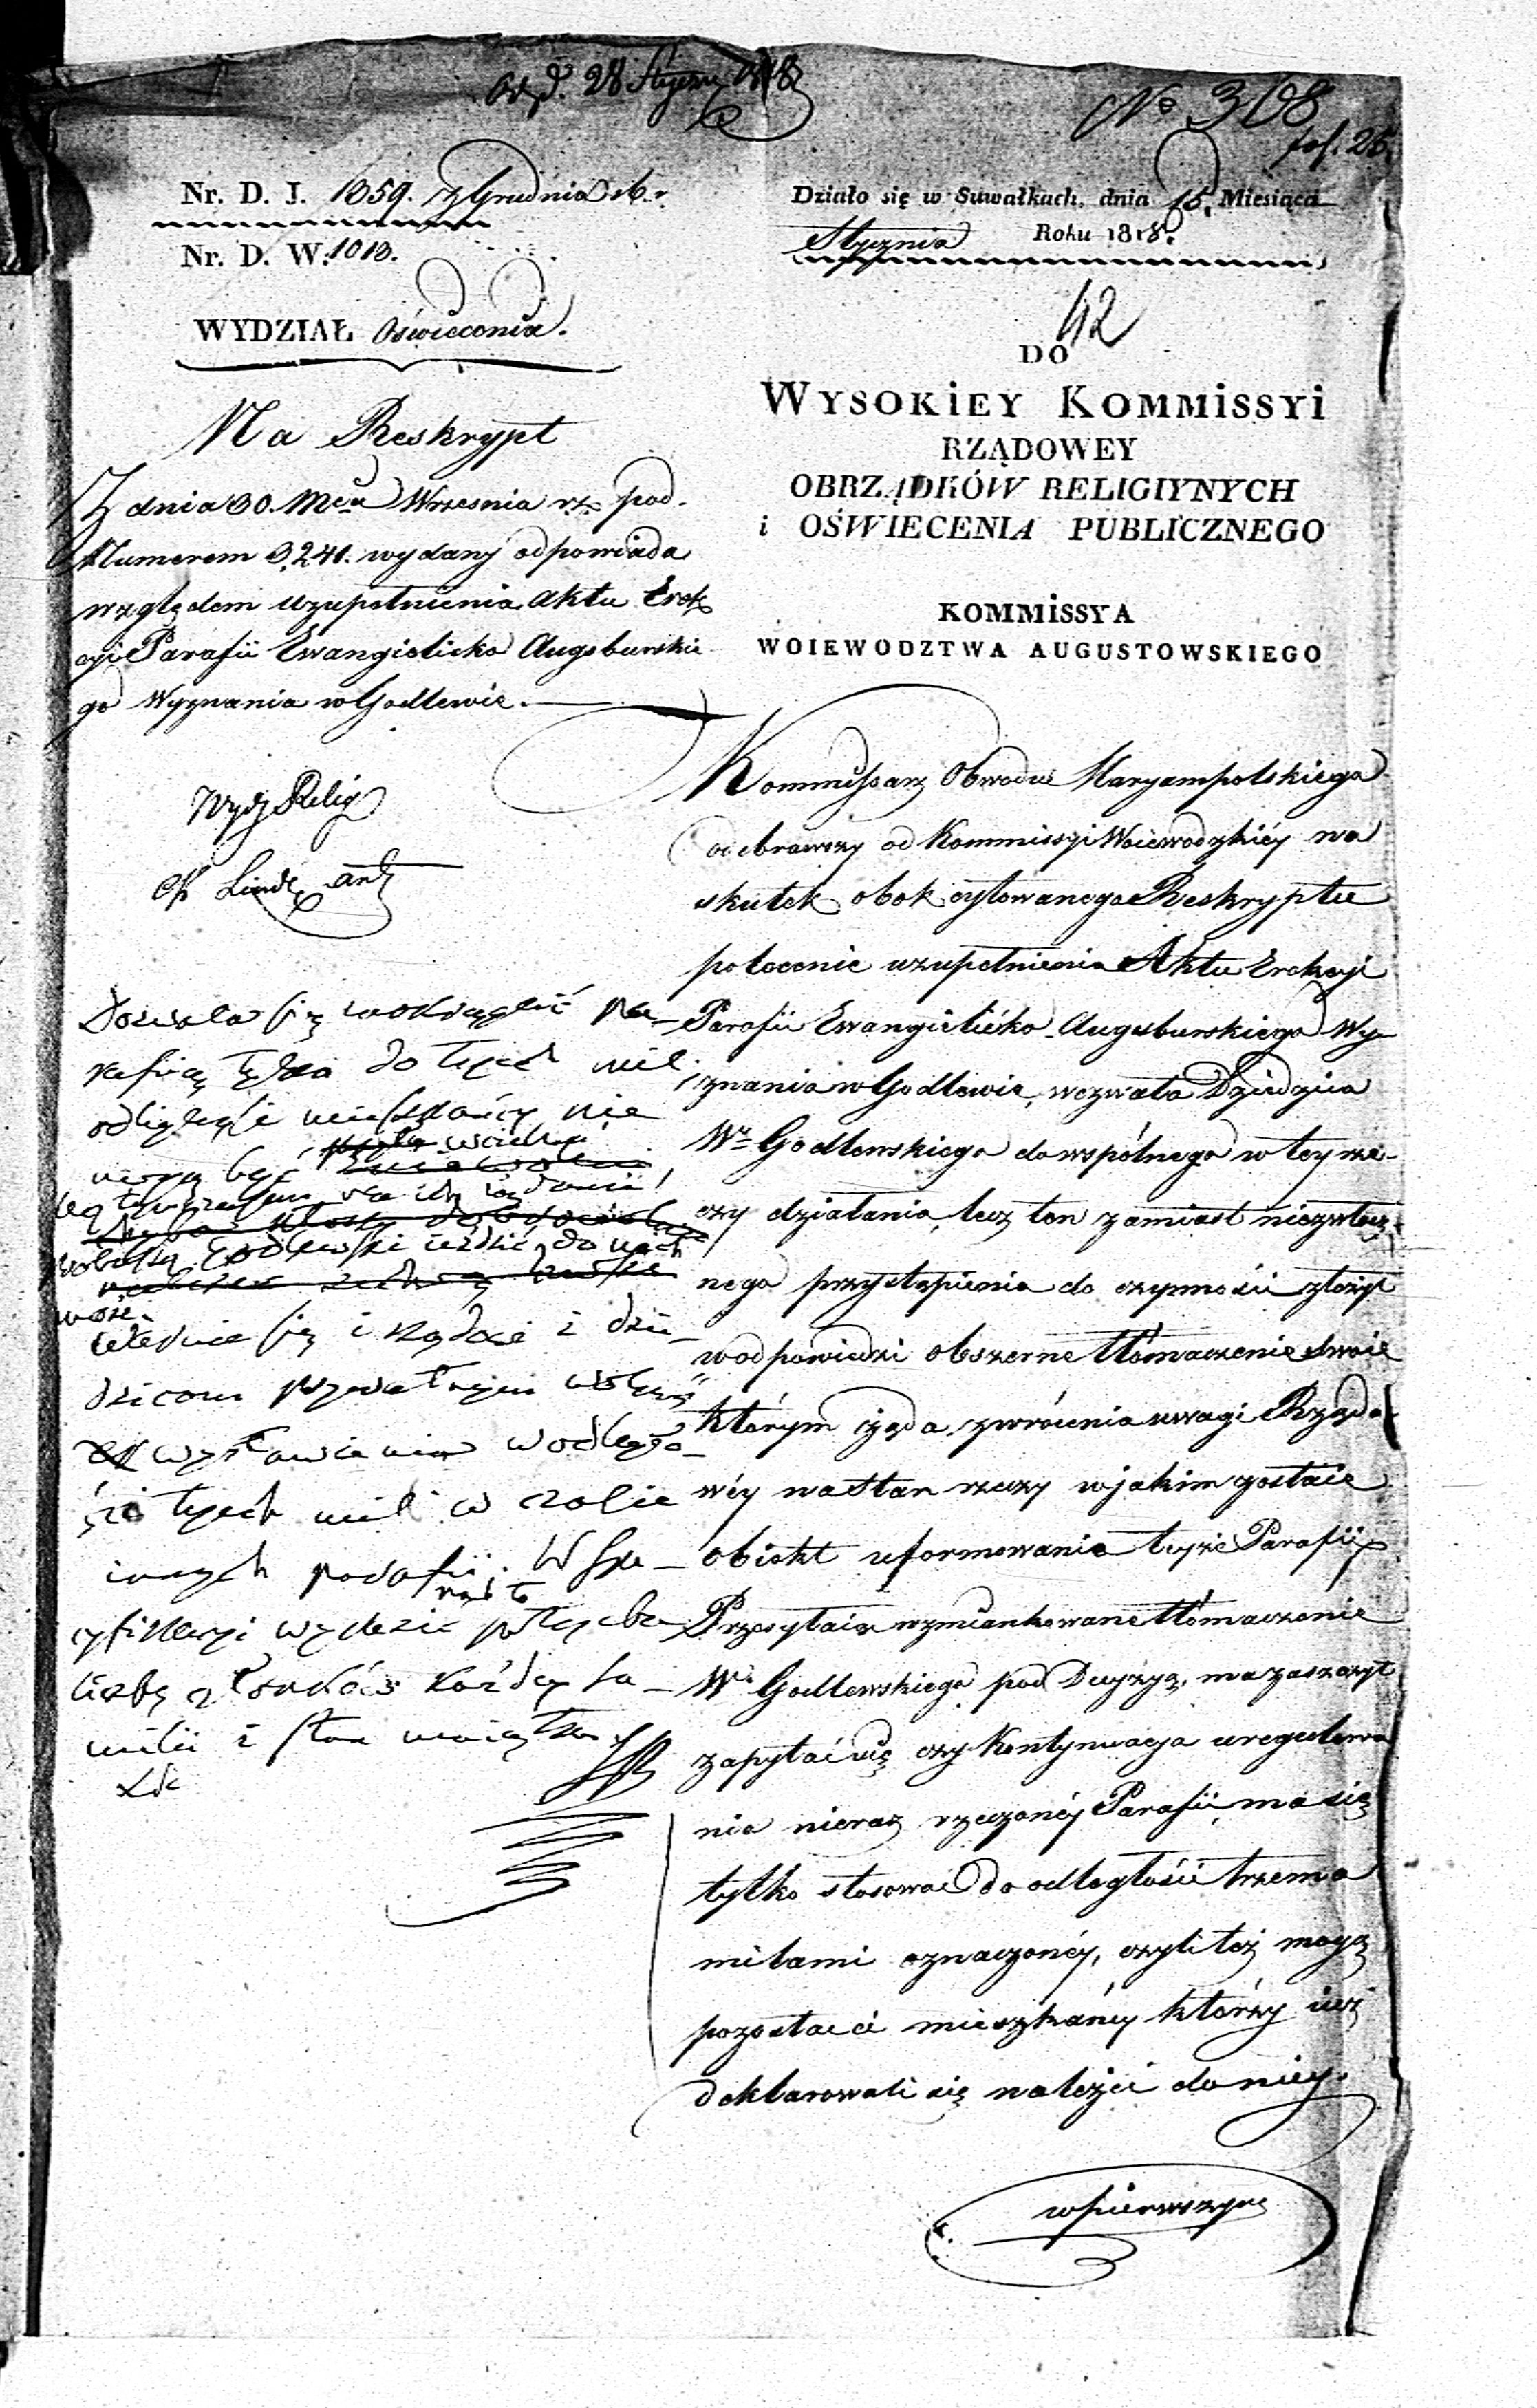 28 Stycznia 1818
No 3198
pos. 25.
Nr. D. I. 1059. z Grudnia 16. r.
Nr. D. W. 1013.
WYDZIAŁ Oświecenia.
Działo się w Suwałkach, dnia 15. Miesiąca
Stycznia Roku 1818.
42
DO
WYSOKiEY KOMMiSSYi
RZĄDOWEY
OBRZĄDKÓW RELIGIYNYCH
i OŚWIECENIA PUBLICZNEGO
KOMMiSSYA
WOIEWODZTWA AUGUSTOWSKIEGO
Na Reskrypt
Z dnia 30. Mca Wrzesnia r.z. pod
Numerem 3,241. wydany odpowiada
względem uzupełnienia Aktu Erek
cyi Parafii Ewangielicko Augsburskie
go Wyznania w Godlewie.
Wydz Relig
Linde
Kommissarz Obwodu Maryampolskiego
odebrawszy od Kommissyi Woiewodzkiéy na
skutek obok cytowanego Reskryptu
polecenie uzupełnienia Aktu Erekcyi
Parafii Ewangielicko-Augsburskiego Wy-
znania w Godlewie, wezwał Dziedzica
Wo Godlewskiego do wspólnego w tey rze-
czy działania, lecz ten zamiast niezwłocz-
nego przystąpienia do czynności złożył
w odpowiedzi obszerne tłómaczenie swoie
którym żąda zwrócenia uwagi Rządo-
wéy na stan rzeczy w jakim zostaie
obiekt uformowania teyże Parafii
Przesyłaiąc wzmiankowane tłómaczenie
Wo Godlewskiego pod Decyzyą, ma zaszczyt
zapytać się czy kontynuacya uregulowa
nia nieraz rzeczonéy Parafii, ma się
tylko stosować do odległości trzema
milami oznaczonéy, czyli też mogą
pozostać i mieszkańcy którzy iuż
deklarowali się należéć do niey.
w pierwszym
Dozwala się zaokrąglić pa-
rafią tylko do trzech mil,
odleglejsi mieszkańcy nie
mogą być wcieleni,
żądanie
Godlewski
i
dzicom
wystawienia w odległo-
ści trzech mil w czasie
innych parafii. W spe-
cyfikacyi wyrazić potrzeba
liczbę członków każdey fa-
milii i stan maiątku.